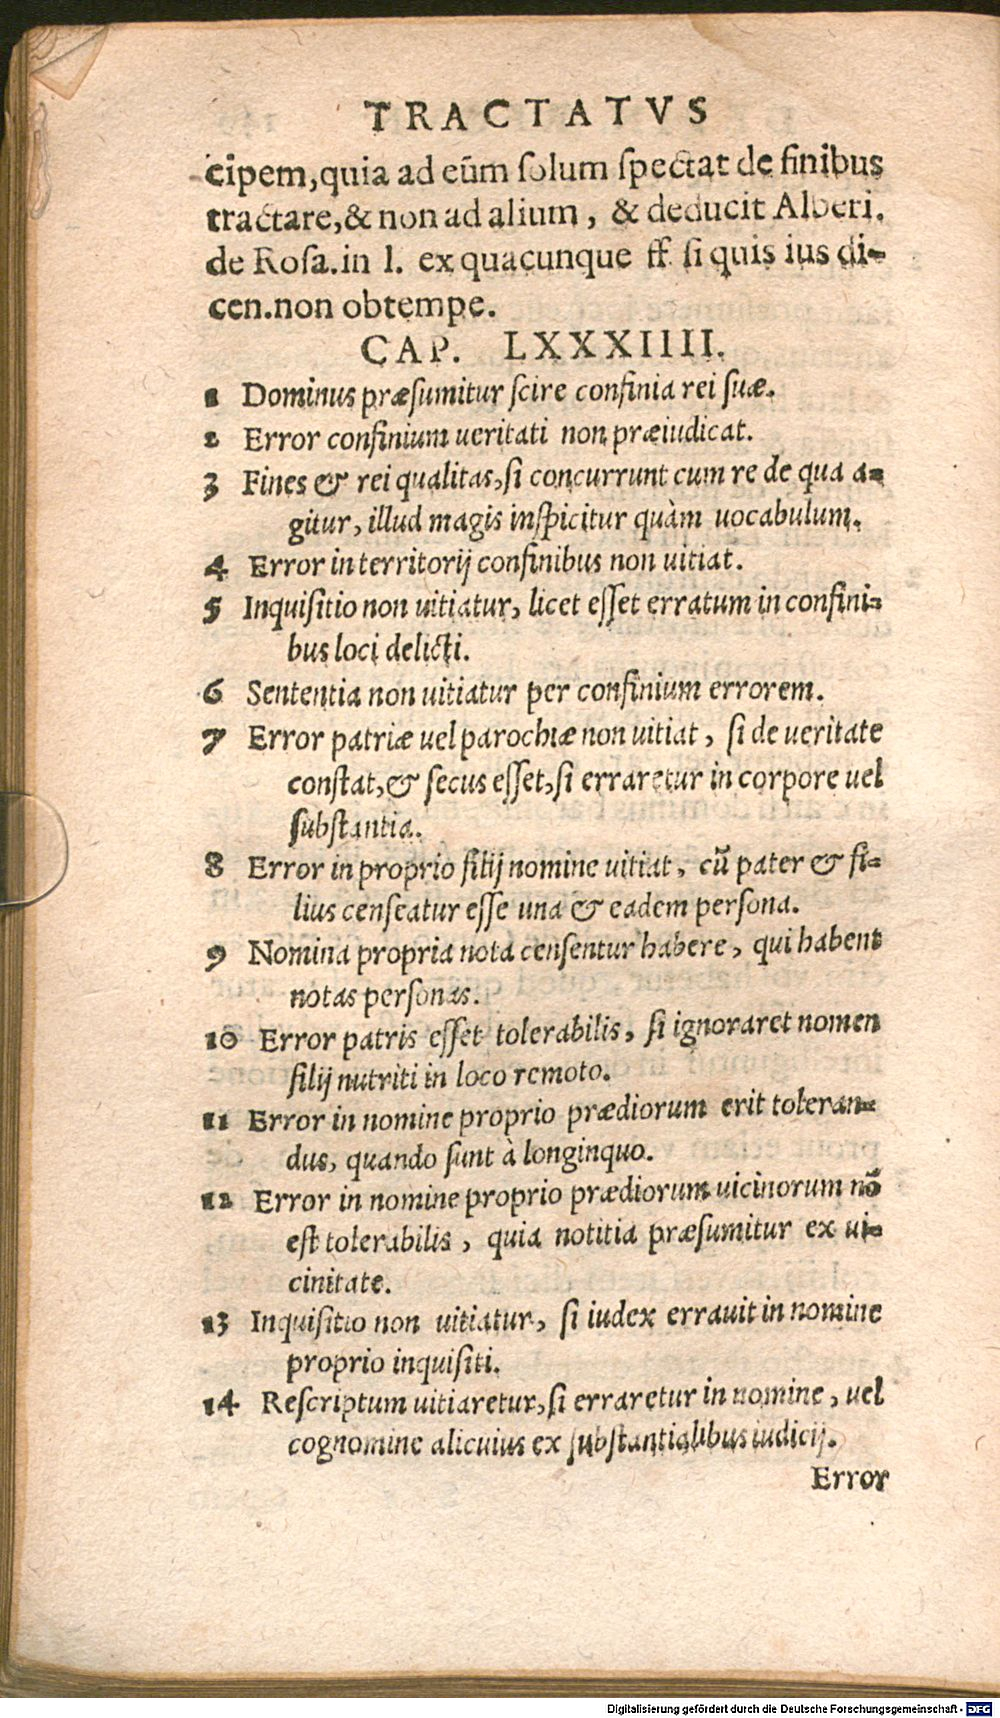 TRACTATVS
cipem,quia ad eūm ſolum ſpectat de finibus
tractare,& non ad alium, & deducit Alberi.
de Roſa.in l. ex quacunque ff. ſi quis ius di-
cen.non obtempe.
CAP. LXXXIIII.
1 Dominus præſumitur ſcire confinia rei ſuæ.
2 Error confinium ueritati non præiudicat.
3 Fines & rei qualitas,ſi concurrunt cum re de qua a-
gitur, illud magis inſpicitur quàm uocabulum.
4 Error in territorij confinibus non uitiat.
5 Inquiſitio non uitiatur, licet eſſet erratum in confini-
bus loci delicti.
6 Sententia non uitiatur per confinium errorem.
7 Error patriæ uel parochiæ non uitiat, ſi de ueritate
conſtat,& ſecus eſſet,ſi erraretur in corpore uel
ſubſtantia.
8 Error in proprio filij nomine uitiat, cū pater & fi-
lius cenſeatur eſſe una & eadem perſona.
9 Nomina propria nota cenſentur habere, qui habent
notas perſonas.
10 Error patris eſſet tolerabilis, ſi ignoraret nomen
filij nutriti in loco remoto.
11 Error in nomine proprio prædiorum erit toleran-
dus, quando ſunt à longinquo.
12 Error in nomine proprio prædiorum uicinorum nō
eſt tolerabilis, quia notitia præſumitur ex ui-
cinitate.
13 Inquiſitio non uitiatur, ſi iudex errauit in nomine
proprio inquiſiti.
14 Reſcriptum uitiaretur,ſi erraretur in nomine, uel
cognomine alicuius ex ſubſtantialibus iudicij.
Error
Digitalisierung gefördert durch die Deutsche Forschungsgemeinschaft - DFG